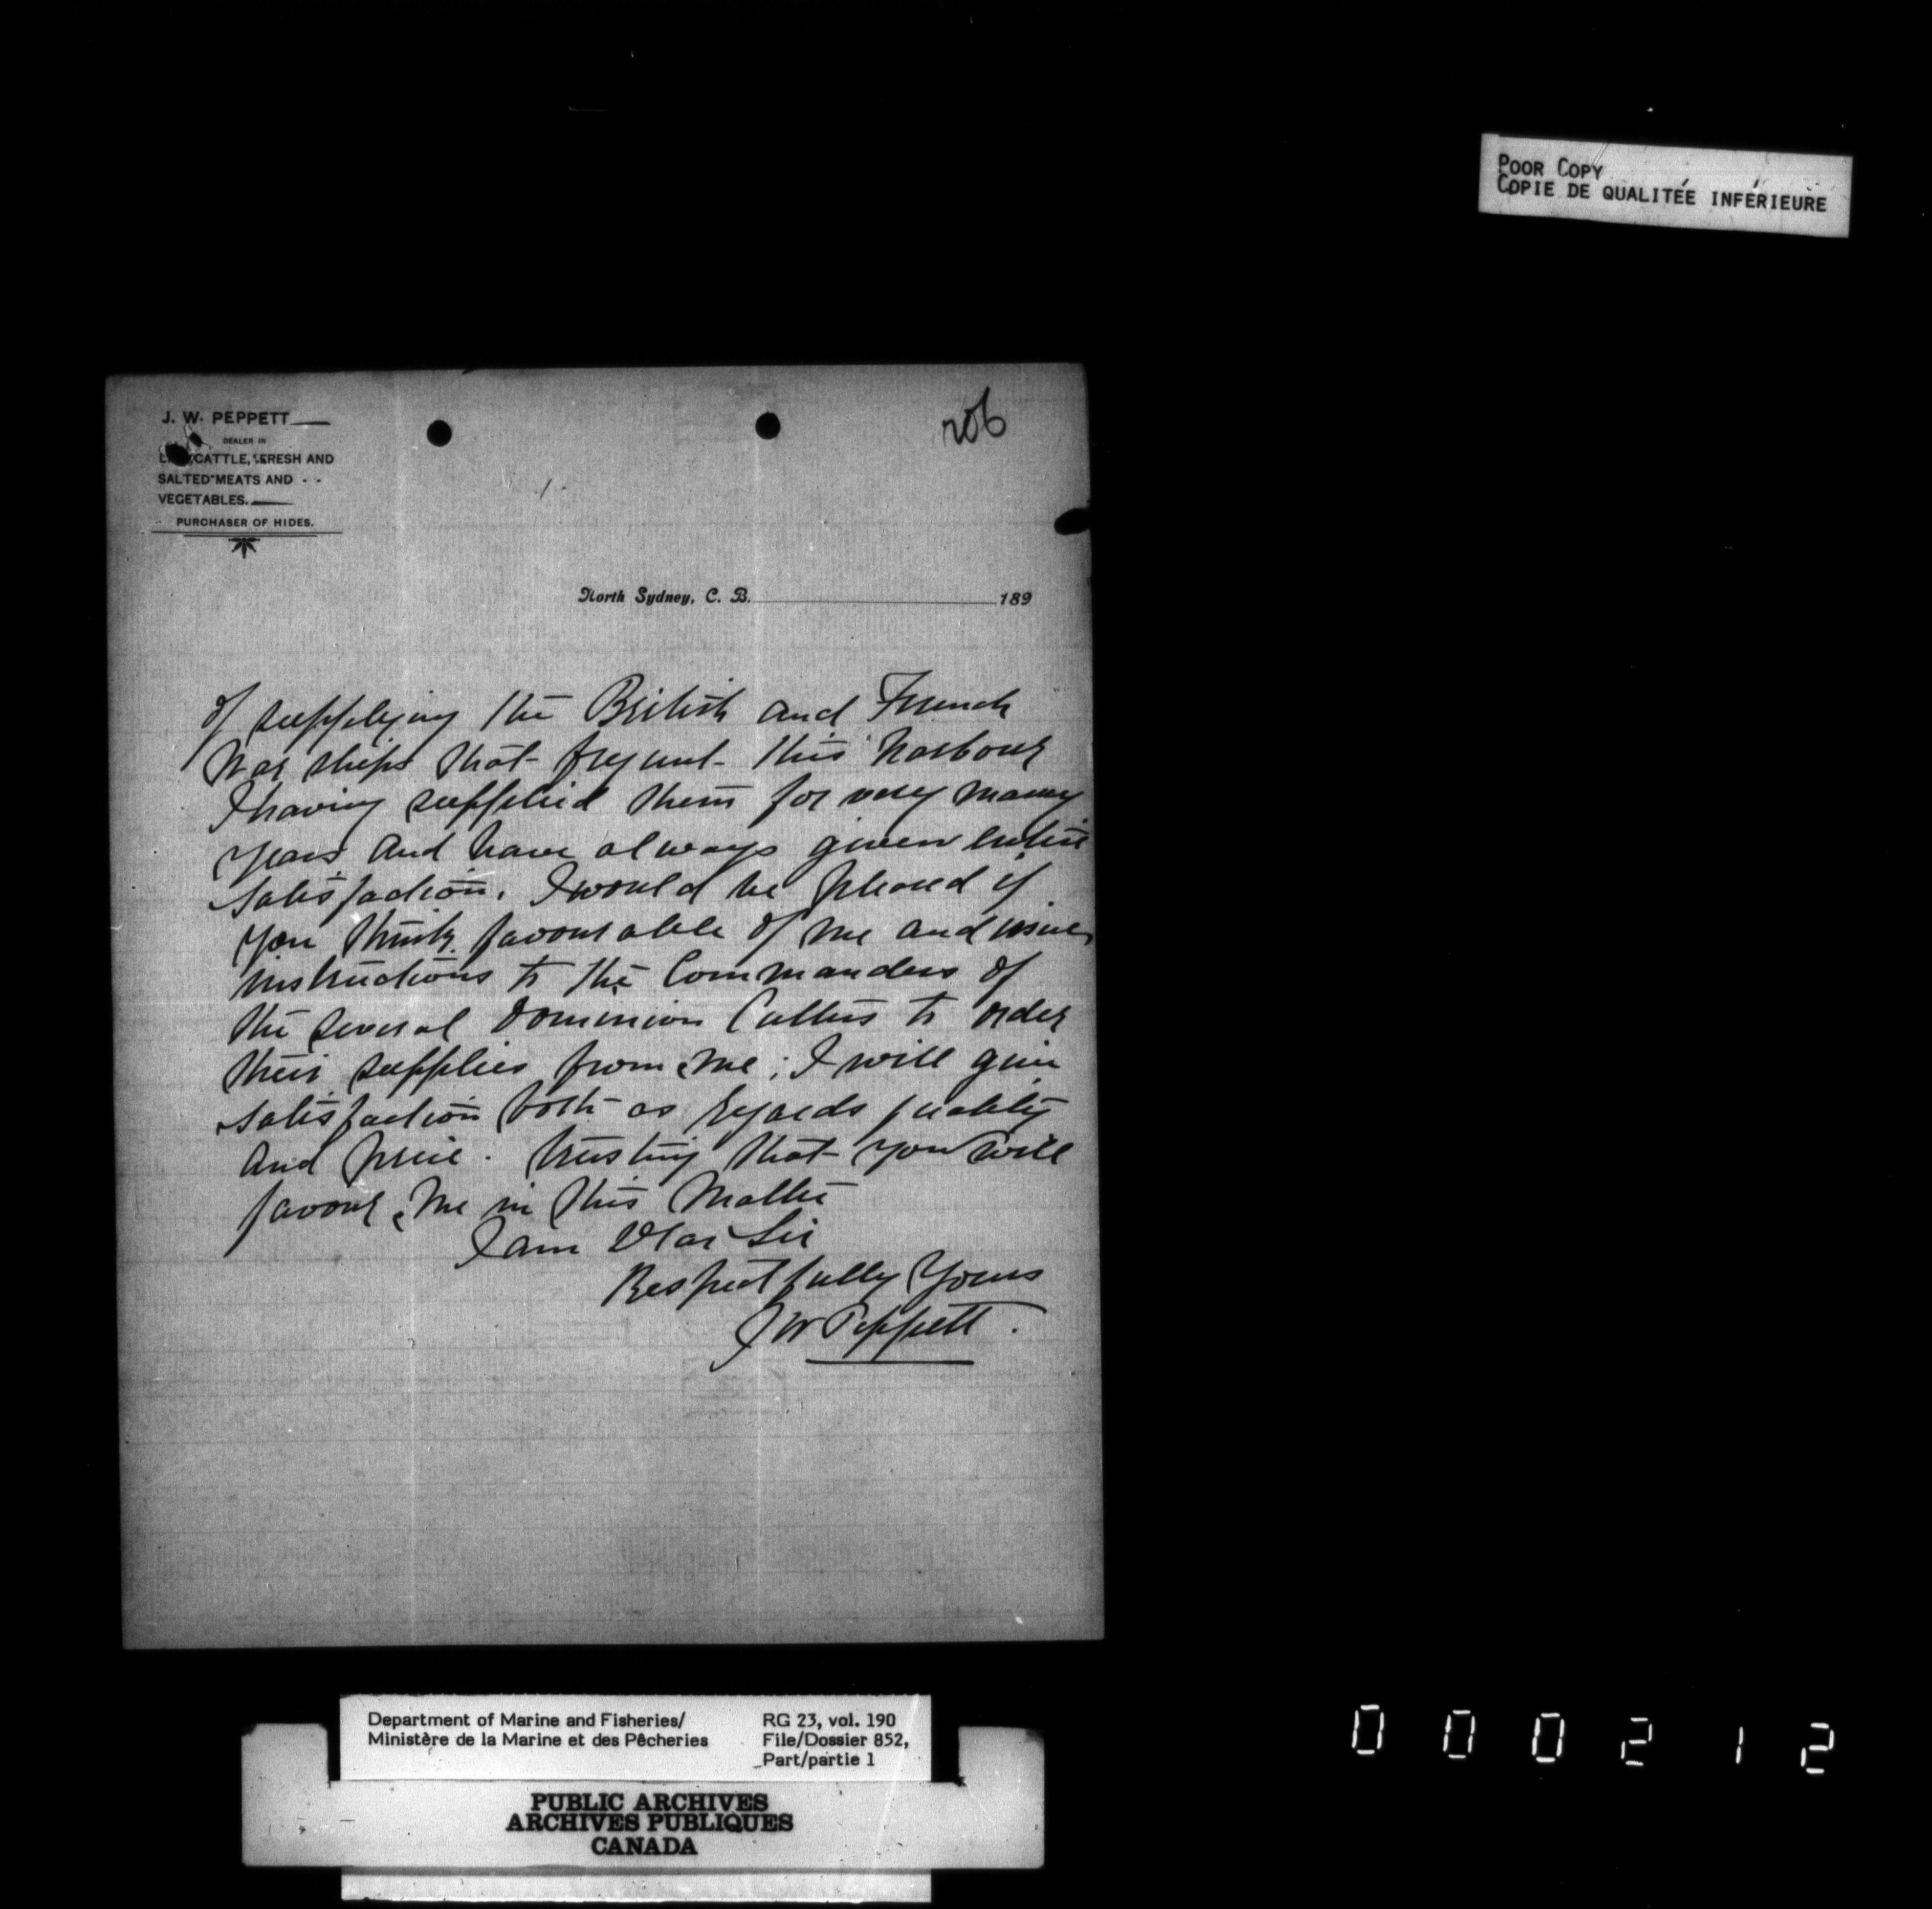 POOR COPY
COPIE DE QUALITÉE INFÉRIEURE
206
J. W. PEPPETT
DEALER IN
CATTLE, FRESH AND
SALTED MEATS AND - -
VEGETABLES.
PURCHASER OF HIDES.
North Sydney, C. B. 189
of supplying the British and French
War ships that frequent this harbour
I having supplied them for very many
years and have always given entire
satisfaction. I would be pleased if
you think favourable of me and issue
instructions to the Commanders of
the several Dominion Cutters to order
their supplies from me; I will give
satisfaction both as regards quality
and price. trusting that you will
favour me in this matter
I am Dear Sir
Respectfully Yours
J W Peppett.
Department of Marine and Fisheries/
Ministère de la Marine et des Pêcheries
RG 23, vol. 190
File/Dossier 852,
Part/partie 1
PUBLIC ARCHIVES
ARCHIVES PUBLIQUES
CANADA
000212